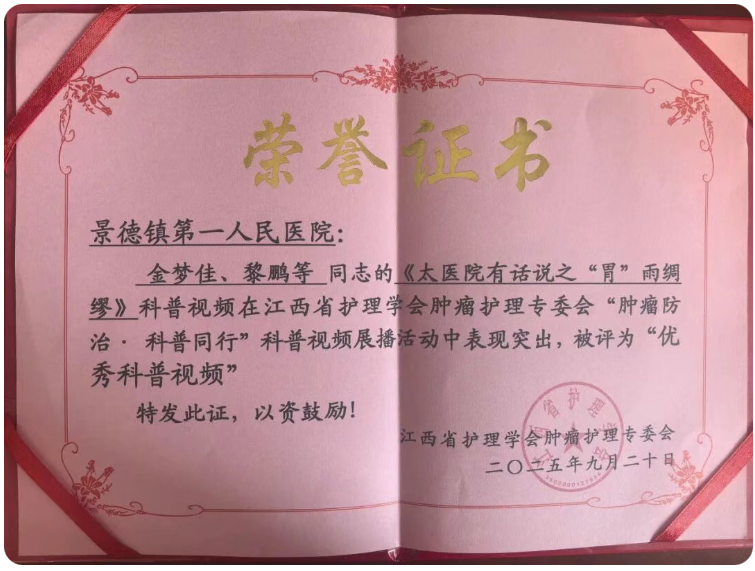 荣誉证书
景德镇第一人民医院：
金梦佳、黎鹏等 同志的《太医院有话说之“胃”雨绸
缪》科普视频在江西省护理学会肿瘤护理专委会“肿瘤防
治· 科普同行”科普视频展播活动中表现突出，被评为“优
秀科普视频”
特发此证，以资鼓励！
江西省护理学会肿瘤护理专委会
二〇二五年九月二十日
江西省护理学会